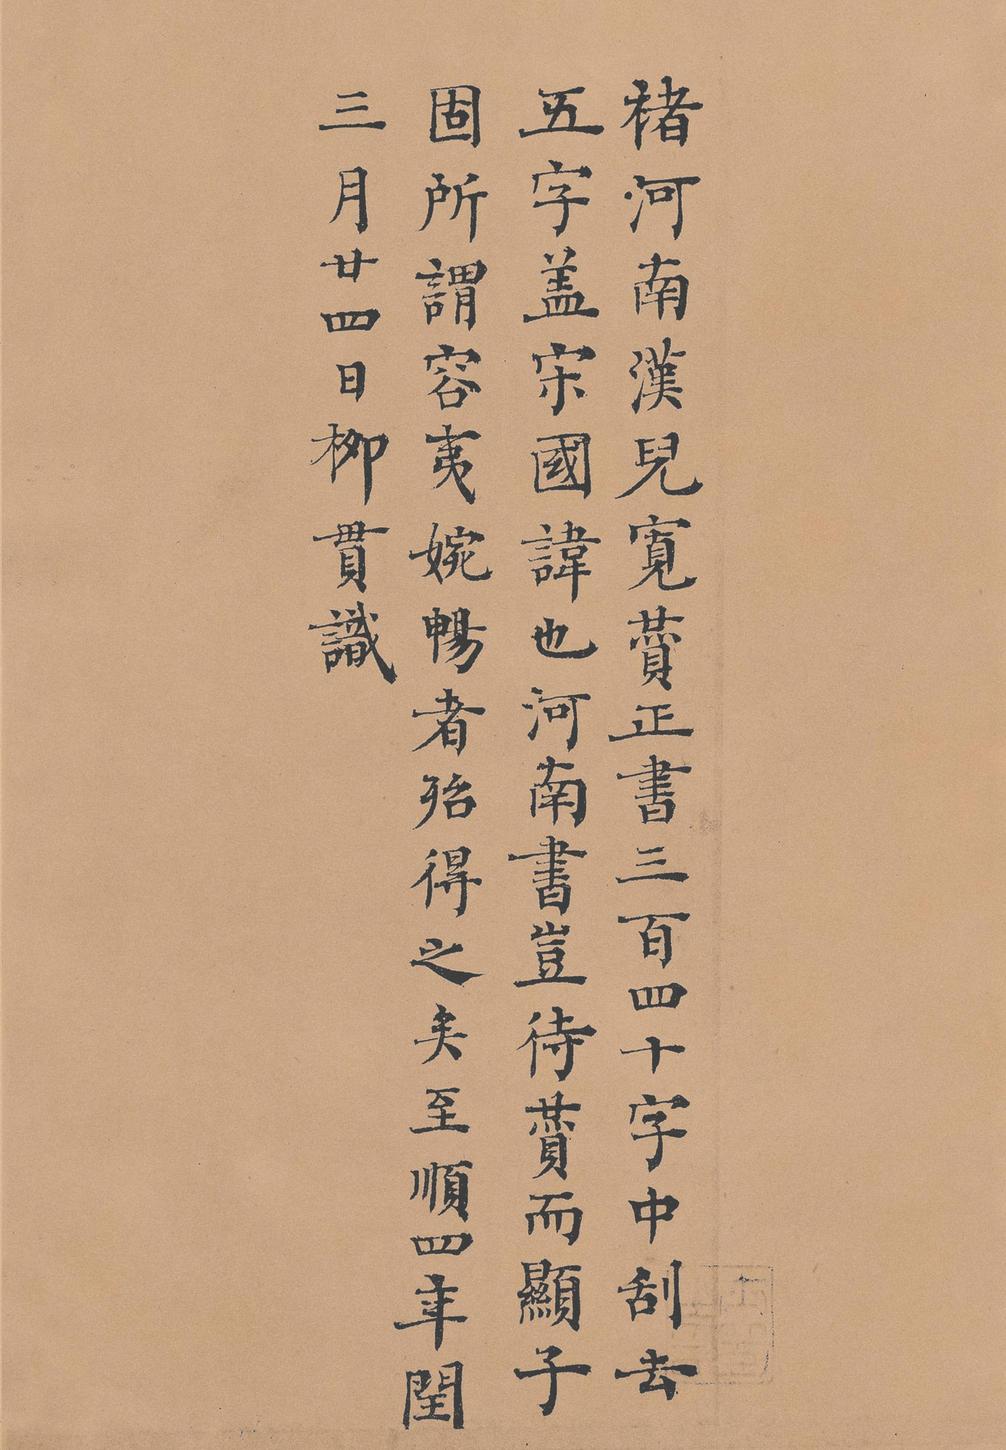 褚河南漢兒寬蕡正書三百四十字中刮去
五字盖宋國諱也河南書豈待蕡而顯子
固所謂容夷婉暢者殆得之矣至順四年閏
三月廿四日柳貫識